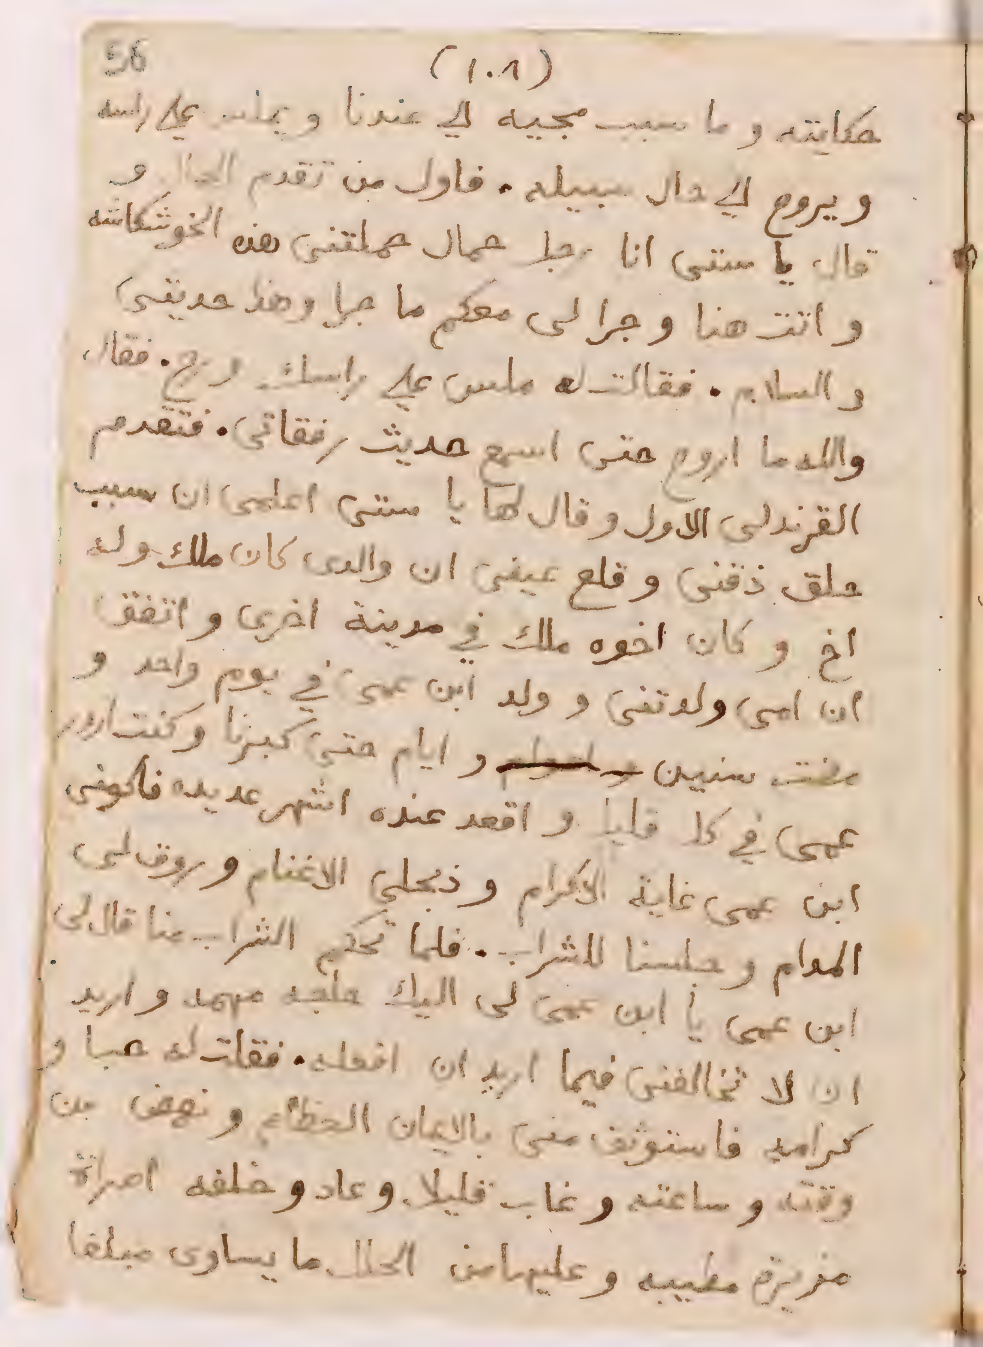 56
(١٠٨)
حكايته و ما سبب مجيه الي عندنا و يملس علي راسه
و يروح الي حال سبيله . فاول من تقدم الحمال و
قال يا ستتي انا رجل حمال حملتني هذه الخوشكاشه
و اتت هنا و جرا لي معكم ما جرا وهذا حديثي
و السلام . فقالت له ملس علي راسك و رح . فقال
والله ما اروح حتي اسمع حديث رفقاتي . فتقدم
القرندلي الاول وقال لها يا ستتي اعلمي ان سبب
حلق ذقني و قلع عيني ان والدي كان ملك وله
اخ و كان اخوه ملك في مدينة اخري و اتفق
ان امي ولدتني و ولد ابن عمي في يوم واحد و
مضت سنين و ايام حتي كبرنا و كنت ازور
عمي في كل قليل و اقعد عنده اشهر عديده فاكرمني
ابن عمي غاية الاكرام و ذبحلي الاغنام و روق لي
المدام و جلسنا للشراب . فلما تحكم الشراب منا قال لي
ابن عمي يا ابن عمي لي اليك حاجه مهمه و اريد
ان لا تخالفني فيما اريد ان افعله . فقلت له حبا و
كرامه فاستوثق مني بالايمان العظام و نهض من
وقته و ساعته و غاب قليلا و عاد و خلفه امراة
مزيزة مطيبه و عليها من الحلل ما يساوي مبلغا